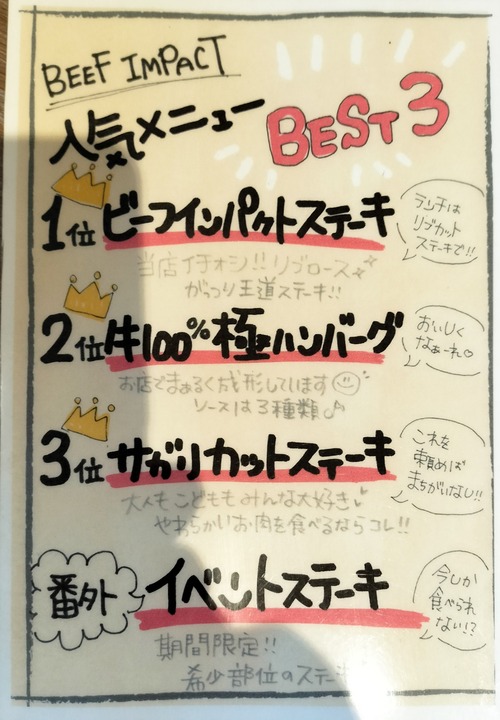 BEEF IMPACT
人気メニュー BEST 3
1位 ビーフインパクトステーキ
ランチは
リブカット
ステーキで!!
当店イチオシ!!リブロース
がっつり王道ステーキ!!
2位 牛100%極ハンバーグ
おいしく
なぁーれ♡
お店でまぁるく成形しています
ソースは3種類♪
3位 サガリカットステーキ
これを
頼めば
まちがいなし!!
大人もこどももみんな大好き♥
やわらかいお肉を食べるならコレ!!
番外 イベントステーキ
今しか
食べられ
ない!?
期間限定!!
希少部位のステーキ